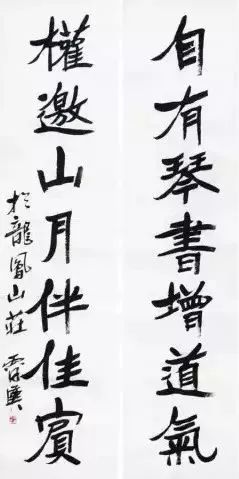 自有琴書增道氣
權邀山月伴佳賓
於龍鳳山莊